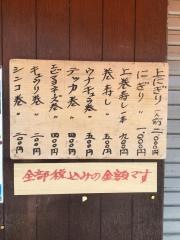 上にぎり(一人前)二、〇〇〇円
にぎり 〃 一、〇〇〇円
上巻寿し一本 九〇〇円
巻寿し 〃 五〇〇円
ウナキュウ巻 〃 五〇〇円
テッカ巻 〃 四〇〇円
エビマヨネーズ巻 四〇〇円
キュウリ巻 〃 二〇〇円
シンコ巻 〃 二〇〇円
全部税込みの金額です